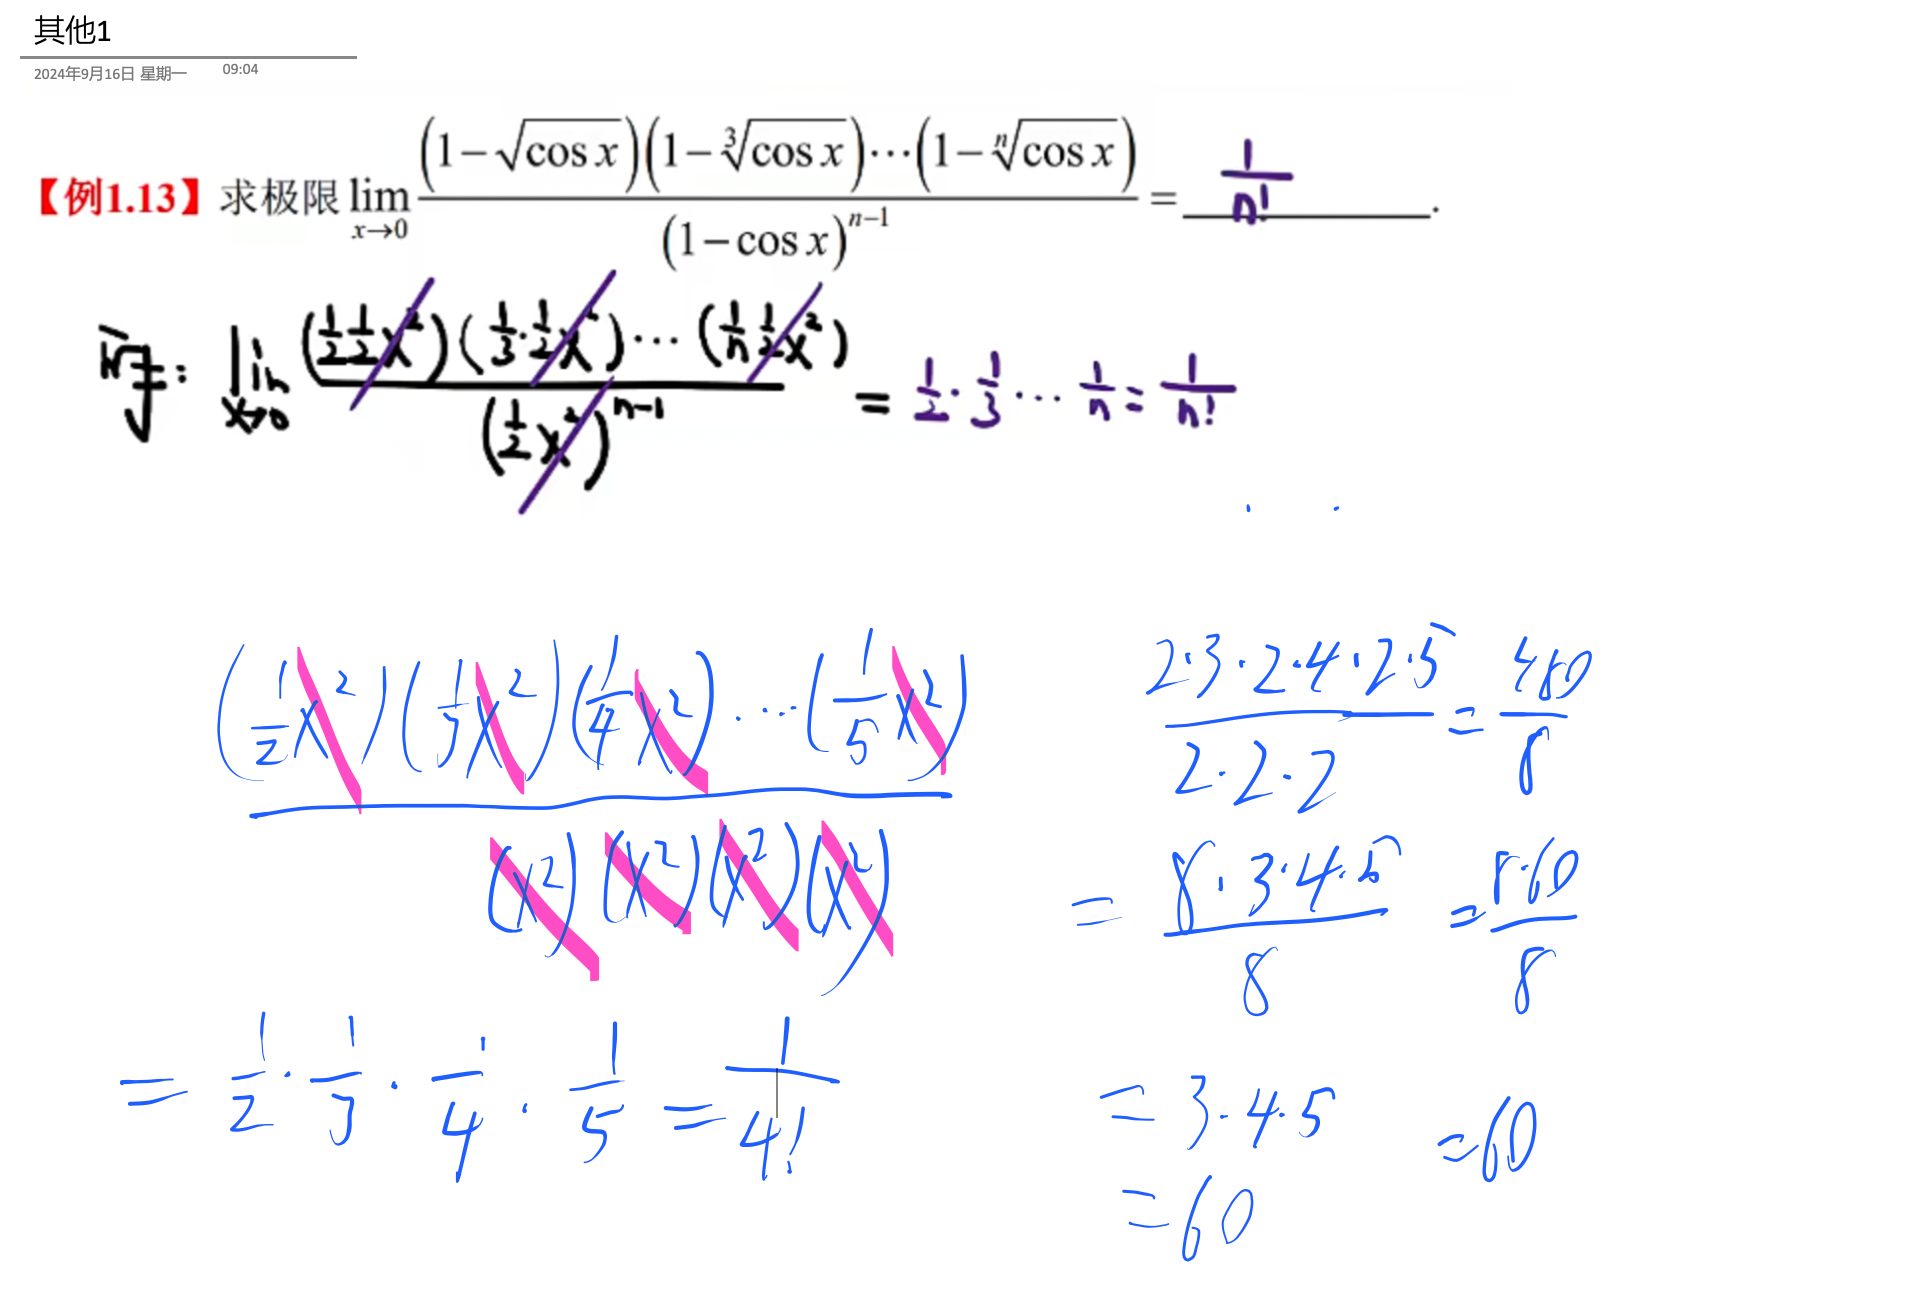 其他1
2024年9月16日 星期一 09:04
【例1.13】求极限 lim_{x→0} (1-√(cos x))(1-∛(cos x))⋯(1-ⁿ√(cos x)) / (1-cos x)^{n-1} = 1/n! .
原式: lim_{x→0} (1/2 1/2 x²)(1/3·1/2 x²)⋯(1/n 1/2 x²) / (1/2 x²)^{n-1} = 1/2·1/3⋯1/n = 1/n!
(1/2 x²)(1/3 x²)(1/4 x²)⋯(1/5 x²) / (x²)(x²)(x²)(x²)
= 1/2·1/3·1/4·1/5 = 1/4!
2·3·2·4·2·5 / 2·2·2 = 480/8
= 8·3·4·5 / 8 = 8·60 / 8
= 3·4·5 = 60
= 60